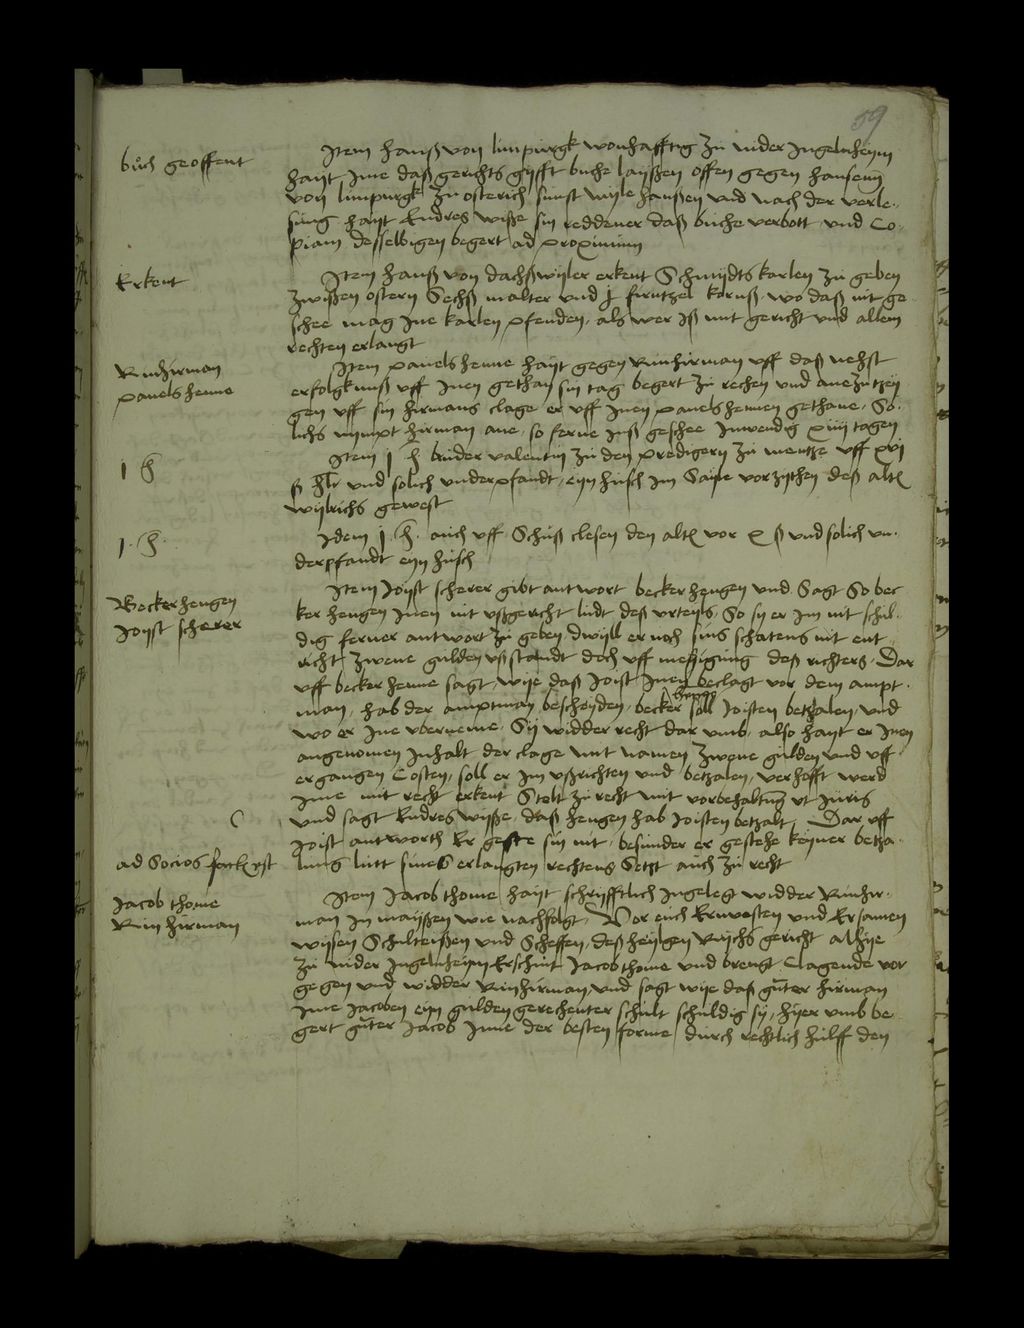 59
buch geoffent
Item Hanß von limpurgk wonhafftig zu nider Ingelnheym
hayt Ime daß gerichts gyfft buche layßen offen gegen hansenn
von limpurgk zu osterich sunst wyle hanßen und nach der verle-
sung hayt Endres wiße sin reddener daß buche verbott und Co-
piam desselbigen begert ad proximum
Erkent
Item hanß von dachßwyler erkent Schmydts karlen zu geben
zwißen ostern Sechß malter und j firntzel kornß wo daß nit ge-
schee mag Ine karlen pfenden als wer Iß mit gericht und allem
rechten erlangt
Rinhirman
pauels henne
Item pauels henne hayt gegen Rinhirman uff daß nehst
erfolgkniß uff Inen gethan sin tag begert zu rechen und anezutzey
gen uff sin hirmans clage er uff Inen pauels hennen gethane So-
lichs nympt hirman ane so ferne Inß geschee Inwendig xiiij tagen
1 h
Item j h bruder valentin zu den predigern zu mentze uff xvj
ß hlr und solich underpfandt eyn husch Im Sayne vorzythen deß alten
wylrichs gewest
1 h
Idem j h auch uff Schuß clesen den alten vor x ß und solich un-
derpfandt eyn husch
Becker hengen
Joyst scherer
Item Joyst scherer gibt antwort becker hengen und Sagt So bec
ker hengen Inen nit ußgericht ludt deß urteyls So sy er Im nit schul-
dig ferner antwort zu geben dwyll er noch sins schatens nit ent
richt zwene gulden ußstandt doch uff messigung deß richters Dar
uff becker henne sagt wye daß Joist Inen beclagt vor dem ampt-
man hab der amptman bescheyden becker hengen soll Joisten betzalen und
wo er Ine uberneme Sy widder recht dar umb also hayt er Inen
angenomen Inhalt der clage mit namen zwene gulden und uff
ergangen Costen soll er Im ußrichten und betzalen verhofft werd
Ime mit recht erkent Stelt zu recht mit vorbehaltung ut Juris
und sagt Endres wyße daß hengen hab Joisten betzalt Dar uff
Joist antworth Er geste sin nit besunder er gestehe keyner betza-
ad Socios
lung lutt sines erlangten rechtens Setzt auch zu recht
Jacob thome
Rinhirman
Item Jacob thome hayt schryfftlich Ingelegt widder Rinhir-
man In mayßen wie nachfolgt Vor euch Ernvesten und Ersamen
wysen Schulteißen und Scheffen deß heylgen Rychs gericht alhye
zu nider Ingelnheym Erschint Jacob thome und brengt Clagende vor
gegen und widder Rinhirman und sagt wye daß guter hirman
Ime Jacoben eyn gulden gerechenter schult schuldig sy hyer umb be-
gert guter Jacob Inne der besten forme durch rechtlich hulff den